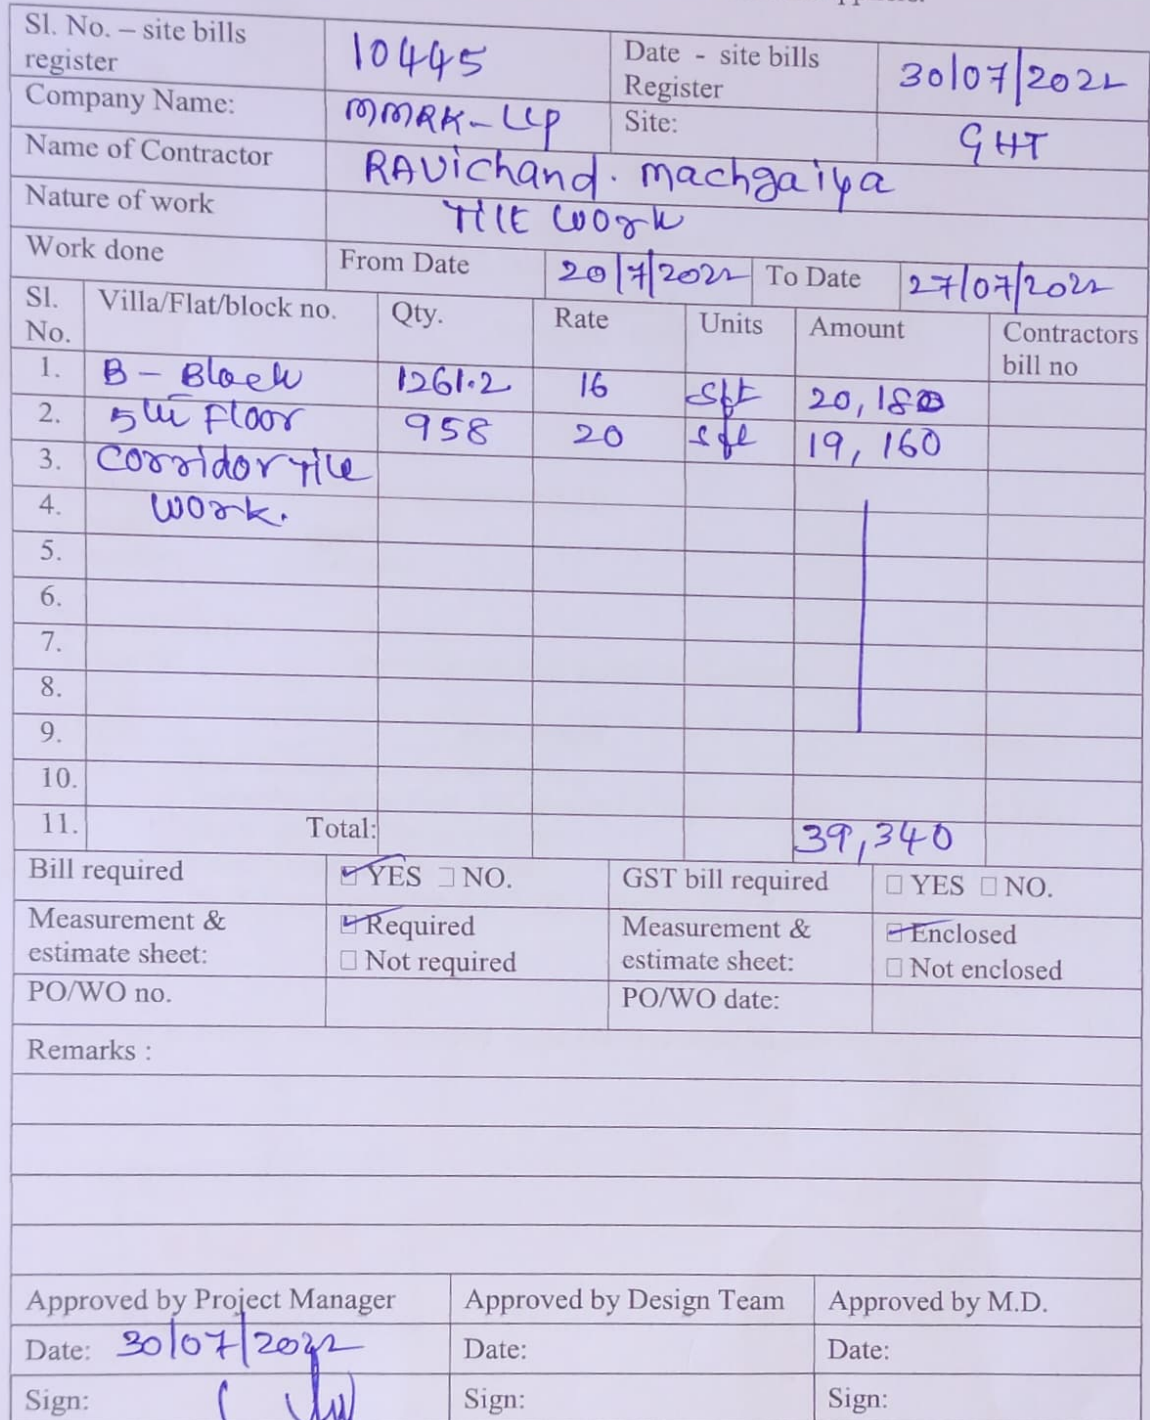 Sl. No. – site bills register 10445 Date - site bills Register 30/07/2022
Company Name: MMRK-LLP Site: GHT
Name of Contractor RAVichand. machgaiya
Nature of work TILE WORK
Work done From Date 20/7/2022 To Date 27/07/2022
Sl. No. Villa/Flat/block no. Qty. Rate Units Amount Contractors bill no
1. B - Block 1261.2 16 sft 20,180
2. 5th Floor 958 20 sft 19,160
3. Corridor Tile
4. work.
5.
6.
7.
8.
9.
10.
11. Total: 39,340
Bill required YES NO. GST bill required YES NO.
Measurement & estimate sheet: Required Not required Measurement & estimate sheet: Enclosed Not enclosed
PO/WO no. PO/WO date:
Remarks :
Approved by Project Manager Approved by Design Team Approved by M.D.
Date: 30/07/2022 Date: Date:
Sign: Sign: Sign: